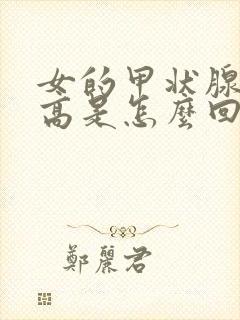 女的甲状腺
高是怎麼回
鄭麗君